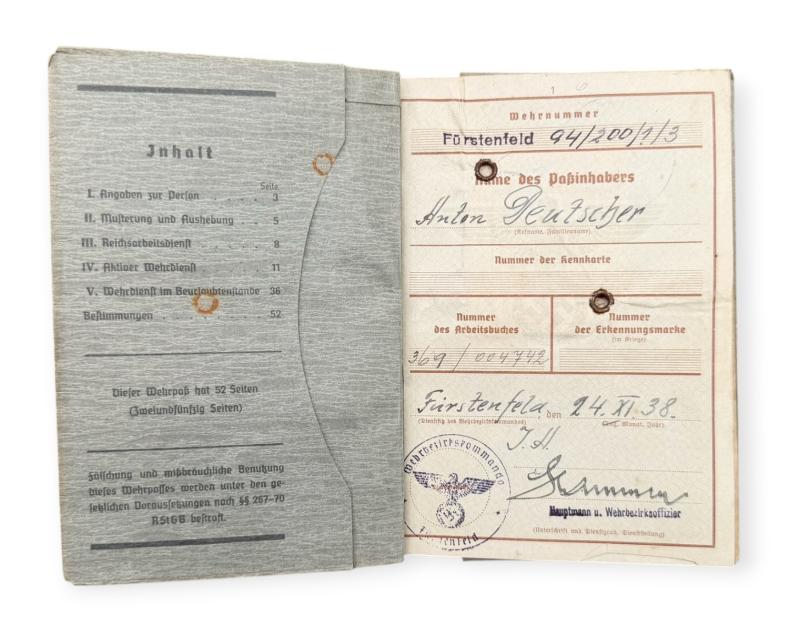 Inhalt
Seite
I. Angaben zur Person . . . . 3
II. Musterung und Aushebung . . 5
III. Reichsarbeitsdienst . . . . . 8
IV. Aktiver Wehrdienst . . . . . 11
V. Wehrdienst im Beurlaubtenstande 36
Bestimmungen . . . . . . 52
Dieser Wehrpaß hat 52 Seiten
(Zweiundfünfzig Seiten)
Fälschung und mißbräuchliche Benutzung
dieses Wehrpasses werden unter den ge-
setzlichen Voraussetzungen nach §§ 267–70
RStGB bestraft.
1
Wehrnummer
Fürstenfeld 94/200/1/3
Name des Paßinhabers
Anton Deutscher
(Rufname, Familienname)
Nummer der Kennkarte
Nummer
des Arbeitsbuches
369/004742
Nummer
der Erkennungsmarke
(im Kriege)
Fürstenfeld, den 24. XI. 38.
(Dienstsitz des Wehrbezirkskommandos) (Tag, Monat, Jahr)
Wehrbezirkskommando
Fürstenfeld
Hauptmann u. Wehrbezirksoffizier
(Unterschrift und Dienstgrad, Dienststellung)